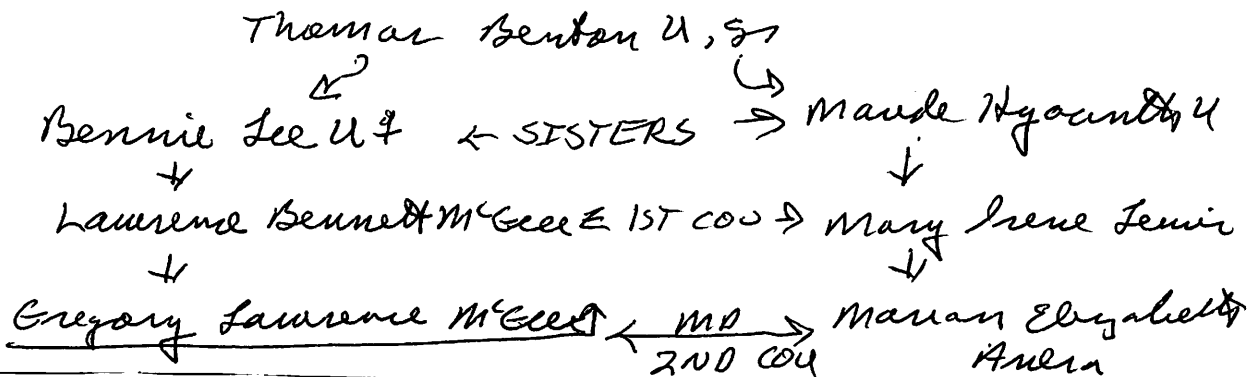 Thomas Benton U, Sr
Bennie Lee U ← SISTERS → Maude Hyacinth U
Lawrence Bennett McGee ← 1ST COU → Mary Irene Lewis
Gregory Lawrence McGee ← MD → Marian Elizabeth
2ND COU